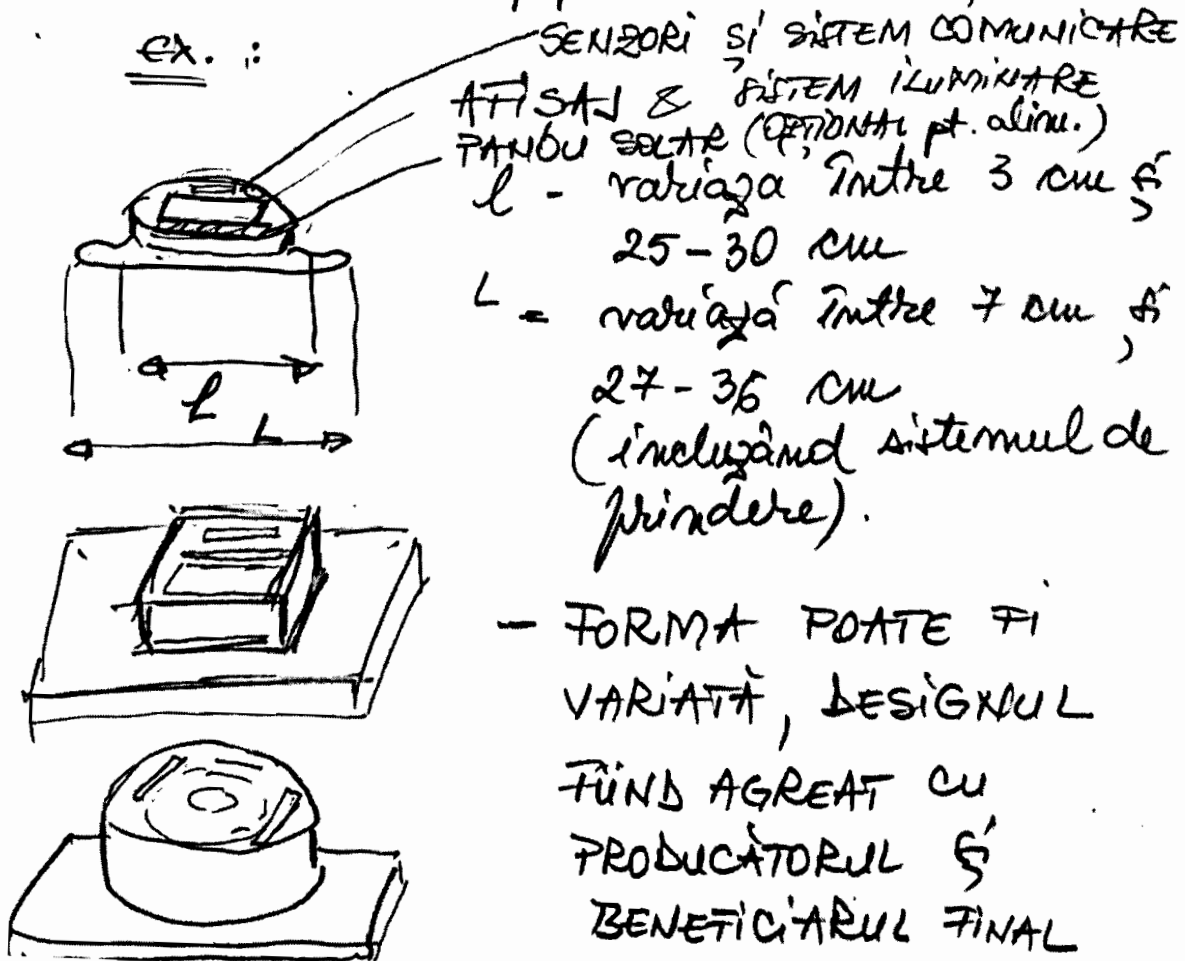 ex. :
SENZORI ȘI SISTEM COMUNICARE
AFISAJ & SISTEM ILUMINARE
PANOU SOLAR (OPȚIONAL pt. alim.)
l - variaza între 3 cm și
25-30 cm
L = variază între 7 cm și
27-36 cm
(incluzând sistemul de
prindere).
l
L
- FORMA POATE FI
VARIATĂ, DESIGNUL
FIIND AGREAT CU
PRODUCĂTORUL ȘI
BENEFICIARUL FINAL